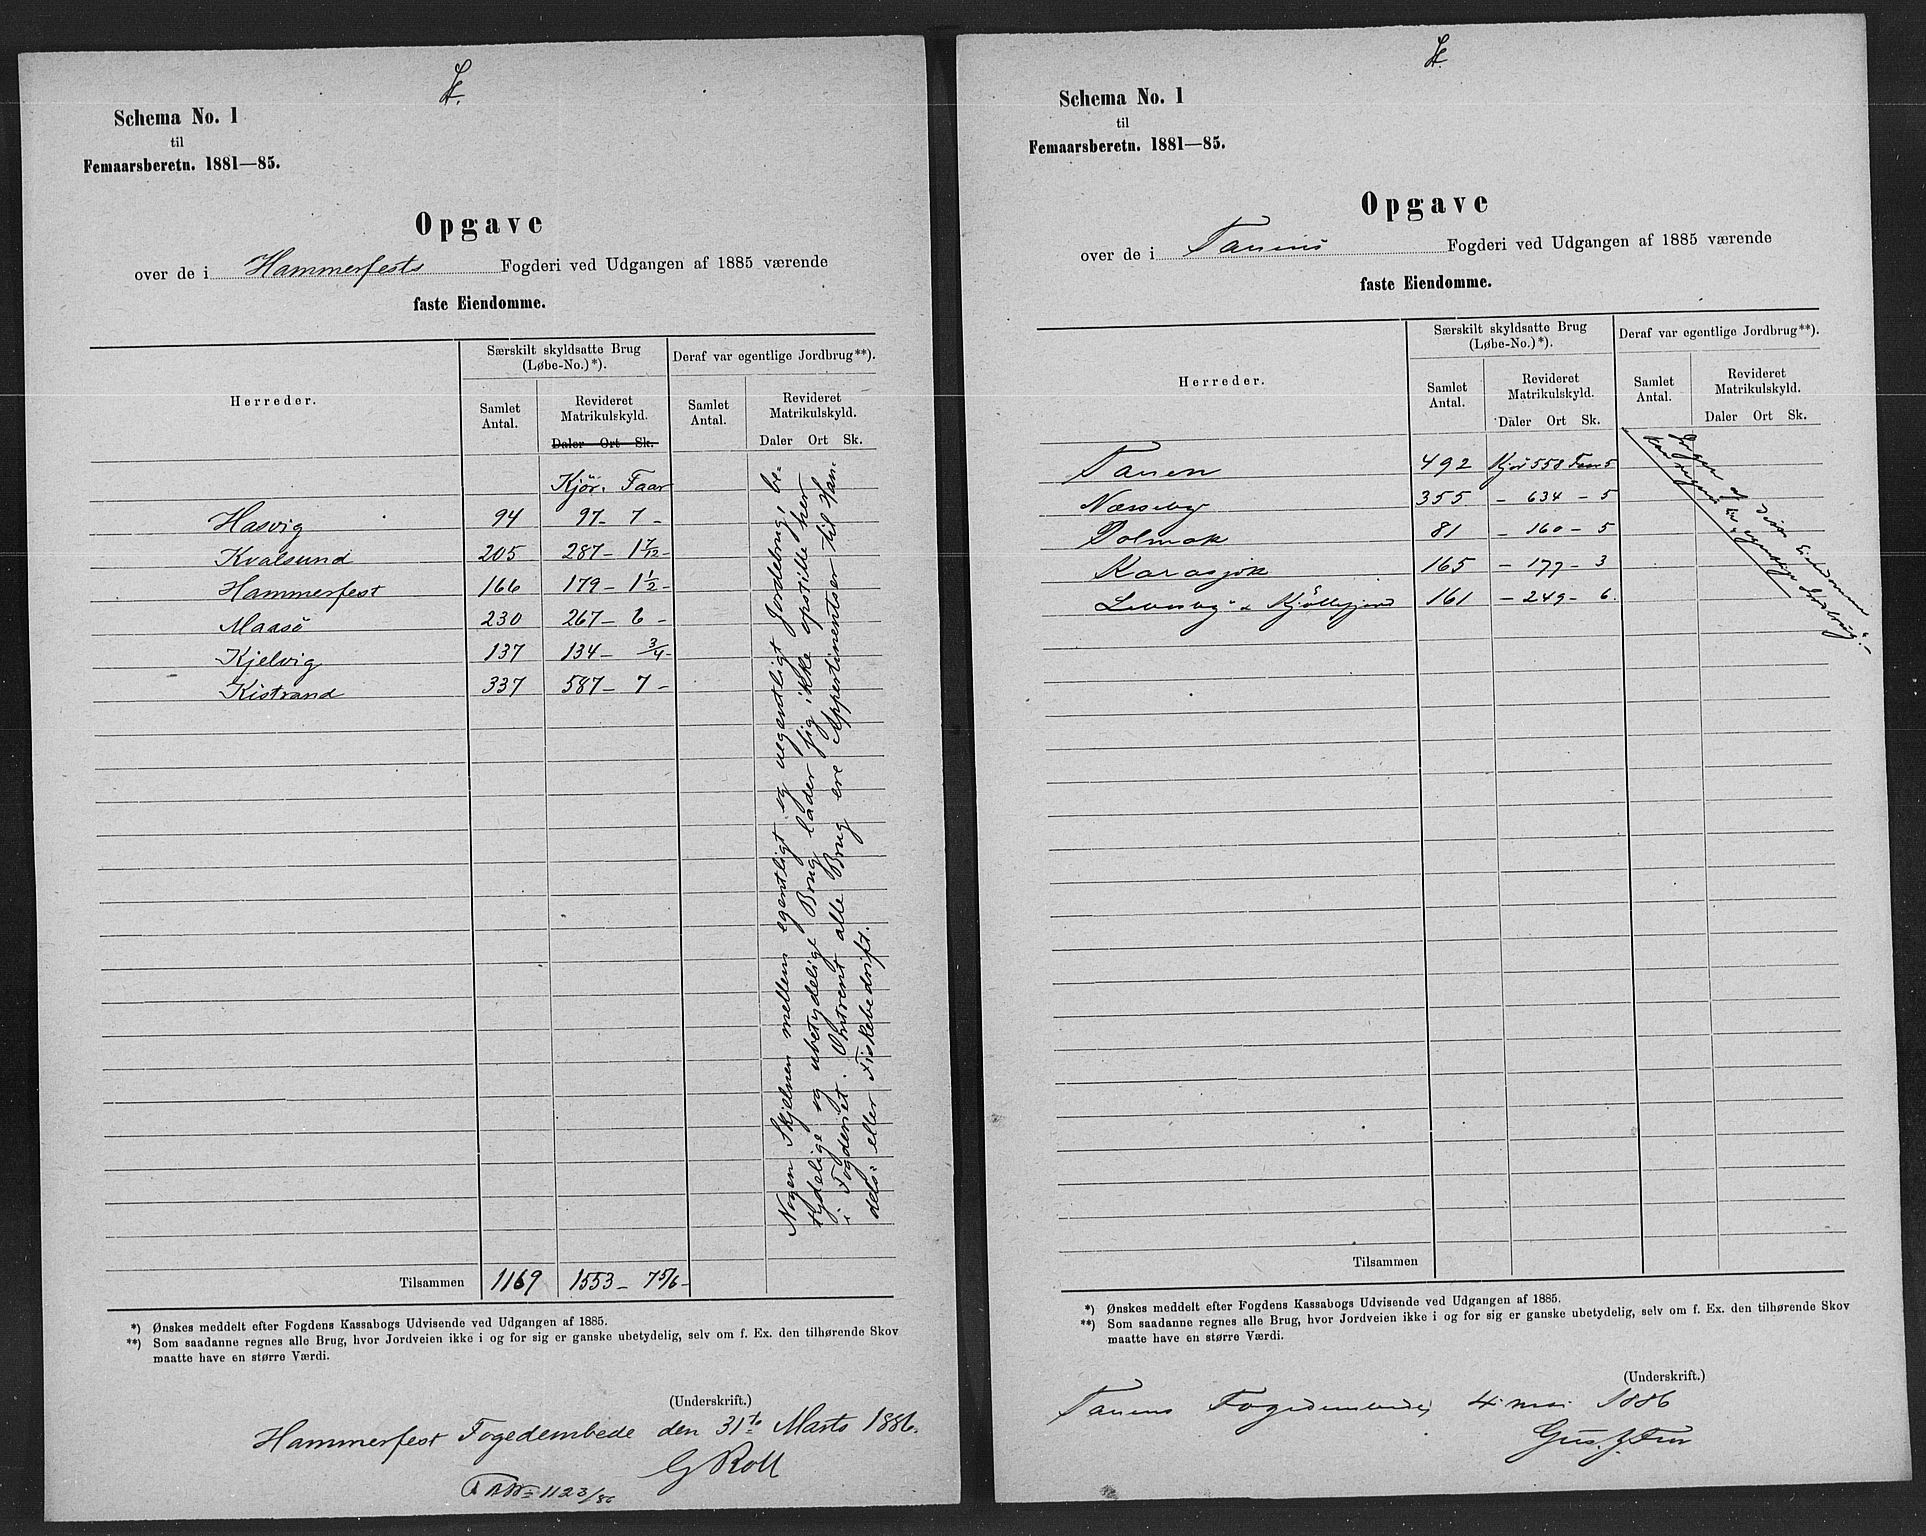 Schema No. 1
til
Femaarsberetn. 1881—85.
Opgave
over de i Hammerfests Fogderi ved Udgangen af 1885 værende
faste Eiendomme.
Herreder.
Særskilt skyldsatte Brug (Løbe-No.)*).
Deraf var egentlige Jordbrug**).
Samlet Antal.
Revideret Matrikulskyld.
Daler Ort Sk.
Samlet Antal.
Revideret Matrikulskyld.
Daler Ort Sk.
Kjør. Faar
Hasvig 94 97 - 7 -
Kvalsund 205 287 - 1 7/12 -
Hammerfest 166 179 - 1 1/2 -
Maasö 230 267 - 6 -
Kjelvig 137 134 - 3/4 -
Kistrand 337 587 - 7 -
Nogen Skjelnen mellem egentligt og uegentligt Jordebrug, be-
tydelige og ubetydeligt Brug lader sig ikke opstille her
i Fogderiet. Omtrent alle Brug ere Appertinentser til Han-
dels- eller Fiskebedrift.
Tilsammen 1169 1553 - 7 5/6 -
*) Ønskes meddelt efter Fogdens Kassabogs Udvisende ved Udgangen af 1885.
**) Som saadanne regnes alle Brug, hvor Jordveien ikke i og for sig er ganske ubetydelig, selv om f. Ex. den tilhørende Skov
maatte have en større Værdi.
(Underskrift.)
Hammerfest Fogedembede den 31te Marts 1886.
G Roll
1123/86
Schema No. 1
til
Femaarsberetn. 1881—85.
Opgave
over de i Tanens Fogderi ved Udgangen af 1885 værende
faste Eiendomme.
Herreder.
Særskilt skyldsatte Brug (Løbe-No.)*).
Deraf var egentlige Jordbrug**).
Samlet Antal.
Revideret Matrikulskyld.
Daler Ort Sk.
Samlet Antal.
Revideret Matrikulskyld.
Daler Ort Sk.
Tanen 492 Kjør 558 Faar 5
Næsseby 355 - 634 - 5
Polmak 81 - 160 - 5
Karasjok 165 - 177 - 3
Lebesby & Kjöllefjord 161 - 249 - 6.
Ingen af disse Eiendomme
kan regnes til "egentlige Jordbrug".
Tilsammen
*) Ønskes meddelt efter Fogdens Kassabogs Udvisende ved Udgangen af 1885.
**) Som saadanne regnes alle Brug, hvor Jordveien ikke i og for sig er ganske ubetydelig, selv om f. Ex. den tilhørende Skov
maatte have en større Værdi.
(Underskrift.)
Tanens Fogedembede 4 mai 1886